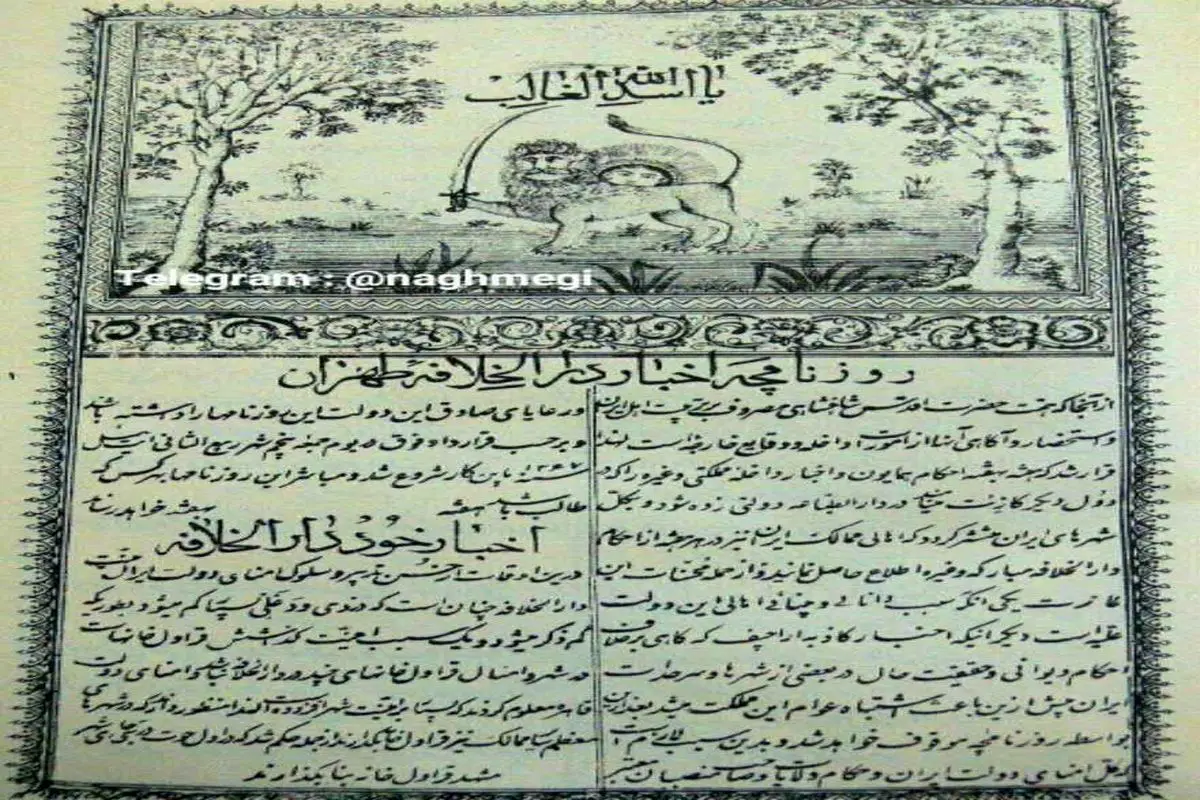 یا اسد الله الغالب
Telegram : @naghmegi
روزنامچه اخبار دارالخلافه طهران
از آنجا که همت حضرت اقدس شاهنشاهی مصروف بر تربیت اهل ایران
و استحضار و آگاهی آنها از امورات داخله و وقایع خارجه است لهذا
قرار شد که هفته بهفته احکام همایون و اخبار داخله مملکتی و غیره را که در
دول دیگر گازیت مینامند در دارالطباعه دولتی زده شود و بکل
شهرهای ایران منتشر گردد که اهالی ممالک ایران نیز در هر هفته از احکام
دارالخلافه مبارکه و غیره اطلاع حاصل نمایند و از جمله محسنات این
یکی آنکه سبب دانائی و بینائی اهالی این دولت
علیه است دیگر اینکه اخبار کاذبه اراجیف که گاهی برخلاف
احکام دیوانی و حقیقت حال در بعضی از شهرها و سرحدات
ایران پیش ازین باعث اشتباه عوام این مملکت میشد بعد ازین
بواسطه روزنامچه موقوف خواهد شد و بدین سبب لازم است
که کل امنای دولت ایران و حکام ولایات و صاحب منصبان معتبر
و رعایای صادق این دولت این روزنامها را داشته باشند
و بر حسب قرارداد فوق یوم جمعه پنجم شهر ربیع الثانی
سنه ۱۲۶۷ باین کار شروع شد و مباشر این روزنامها بهر کس که
طالب باشد همیشه خواهد رساند
اخبار خود دارالخلافه
درین اوقات از حسن سلوک امنای دولت ایران امنیت
دارالخلافه چنان است که دزدی و بدعملی بسیار کم میشود بطوریکه
کم ذکر میشود و یک سبب امنیت گذاشتن قراول خانهاست
در شهر و امسال قراول خانهای چند در دارالخلافه و امنای دولت
قاهره معلوم کردند که بسیار امنیت شهر افزوده است لهذا منظور دارند که در شهرهای
معظم سایر ممالک نیز قراول خانه بگذارند از جمله حکم شد که در اول حوت در
مشهد قراول خانه بنا بگذارند